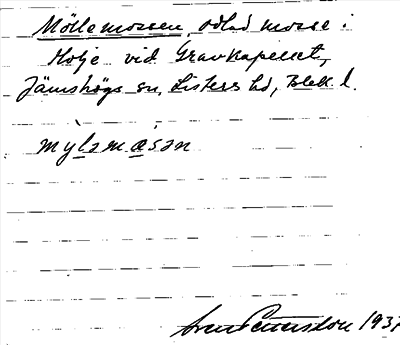 Möllemossen, odlad mosse i
Holje vid Gravkapellet,
Jämshögs sn, Listers hd, Blek. l.
myləmåsən
Sven Petersson 1937